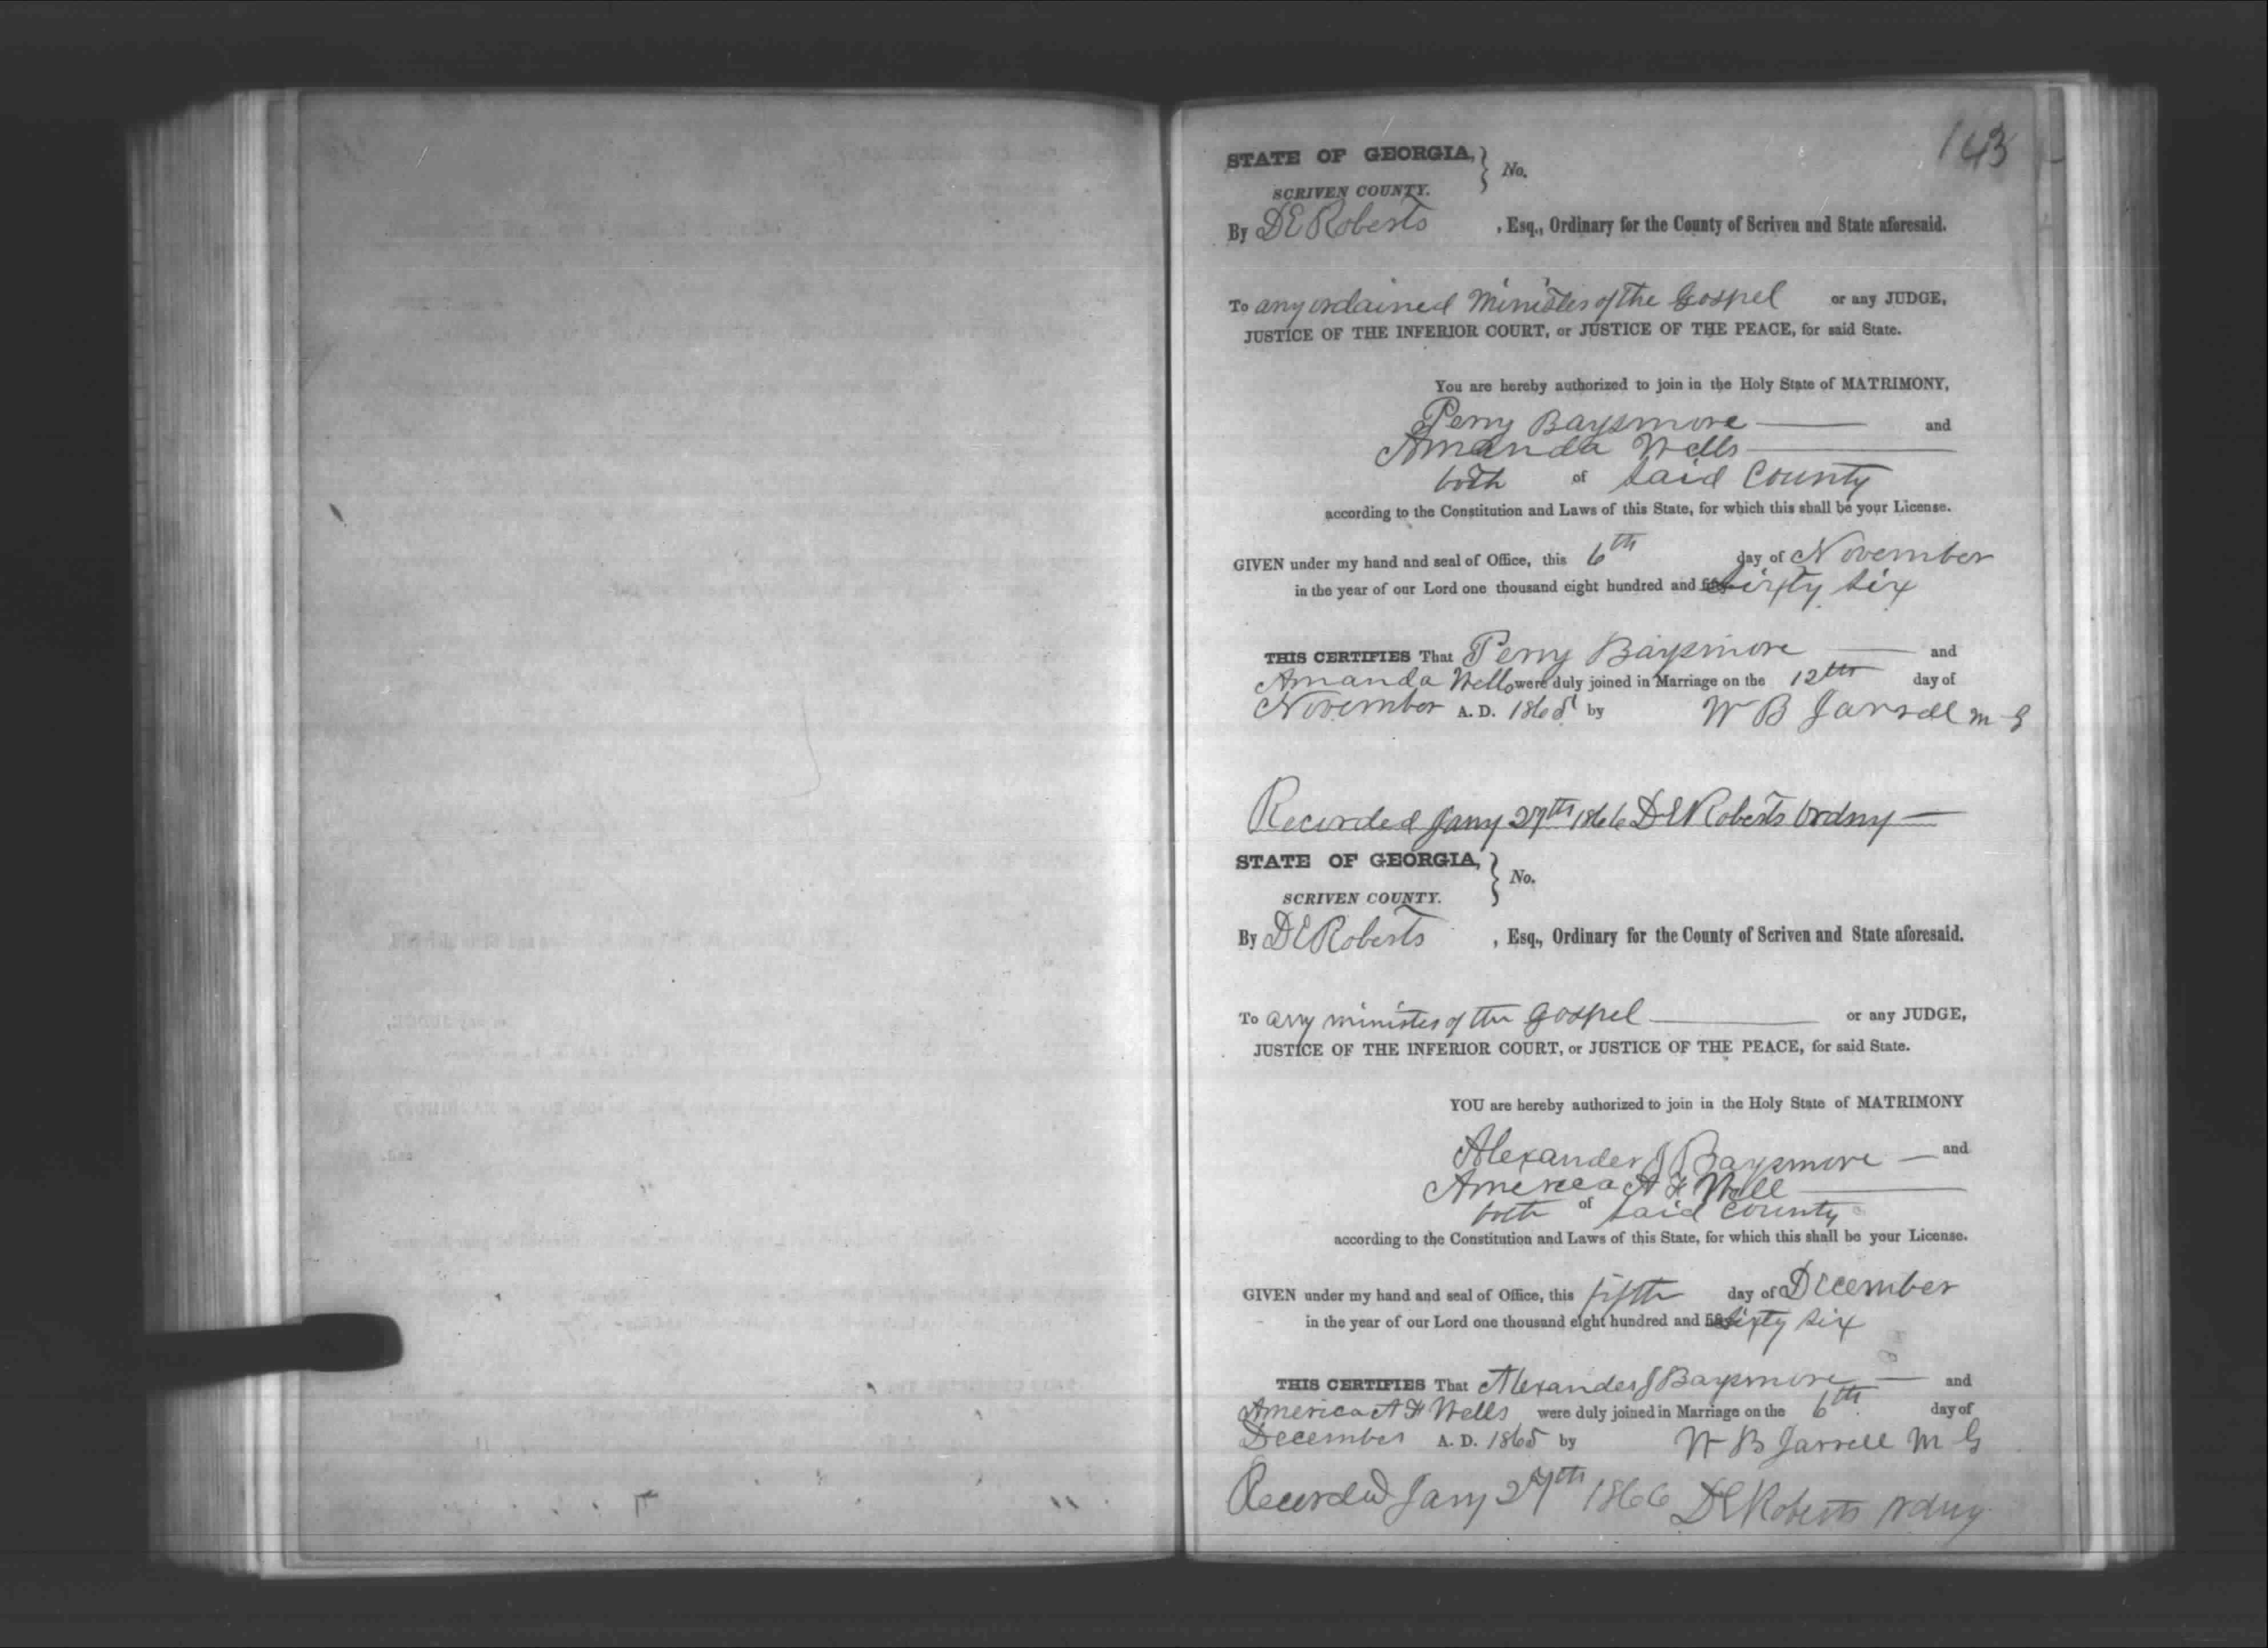 143
STATE OF GEORGIA, } No.
SCRIVEN COUNTY.
By D E Roberts , Esq., Ordinary for the County of Scriven and State aforesaid.
To any ordained Minister of the Gospel or any JUDGE,
JUSTICE OF THE INFERIOR COURT, or JUSTICE OF THE PEACE, for said State.
You are hereby authorized to join in the Holy State of MATRIMONY,
Perry Baysmore and
Amanda Wells
both of said County
according to the Constitution and Laws of this State, for which this shall be your License.
GIVEN under my hand and seal of Office, this 6th day of November
in the year of our Lord one thousand eight hundred and sixty six
THIS CERTIFIES That Perry Baysmore and
Amanda Wells were duly joined in Marriage on the 12th day of
November A. D. 1865 by W B Jarrell M G
Recorded Jany 27th 1866 D E Roberts Ordny
STATE OF GEORGIA, } No.
SCRIVEN COUNTY.
By D E Roberts , Esq., Ordinary for the County of Scriven and State aforesaid.
To any minister of the Gospel or any JUDGE,
JUSTICE OF THE INFERIOR COURT, or JUSTICE OF THE PEACE, for said State.
YOU are hereby authorized to join in the Holy State of MATRIMONY
Alexander J Baysmore and
America A F Well
both of said County
according to the Constitution and Laws of this State, for which this shall be your License.
GIVEN under my hand and seal of Office, this fifth day of December
in the year of our Lord one thousand eight hundred and sixty six
THIS CERTIFIES That Alexander J Baysmore and
America A F Wells were duly joined in Marriage on the 6th day of
December A. D. 1865 by W B Jarrell M G
Recorded Jany 27th 1866 D E Roberts Ordny